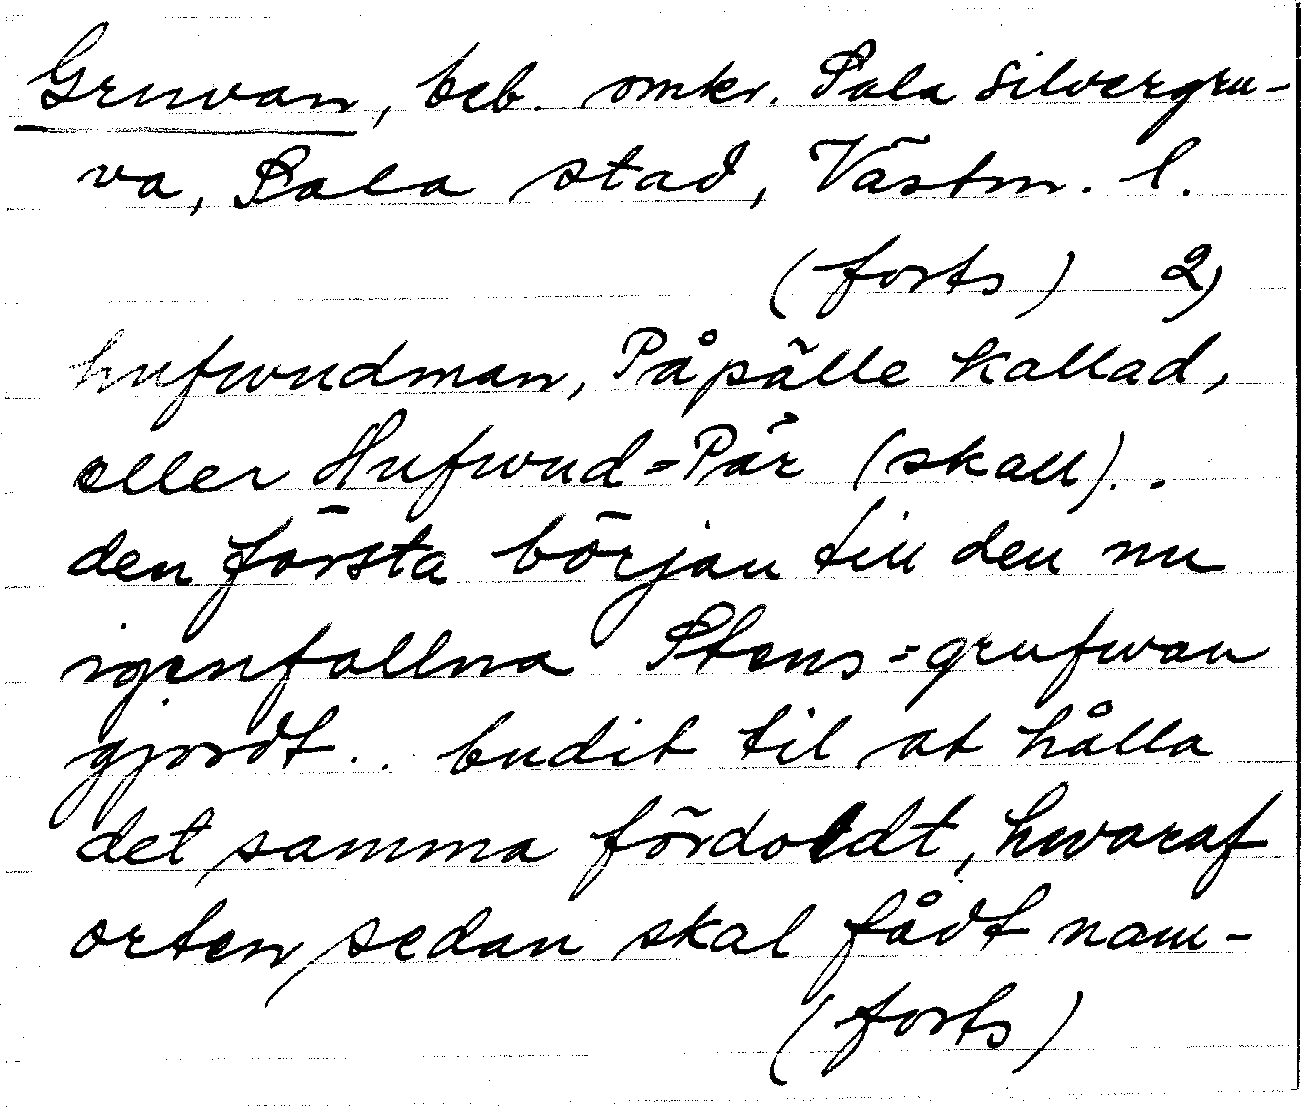 Gruvan, beb. omkr. Sala silvergru-
va, Sala stad, Västm. l.
(forts) 2)
hufwudman, Påpälle kallad,
eller Hufwud=Pär (skall)..
den första början till den nu
igenfallna Stens=grufwan
gjordt.. budit til at hålla
det samma fördoldt, hwaraf
orten sedan skal fådt nam-
(forts)